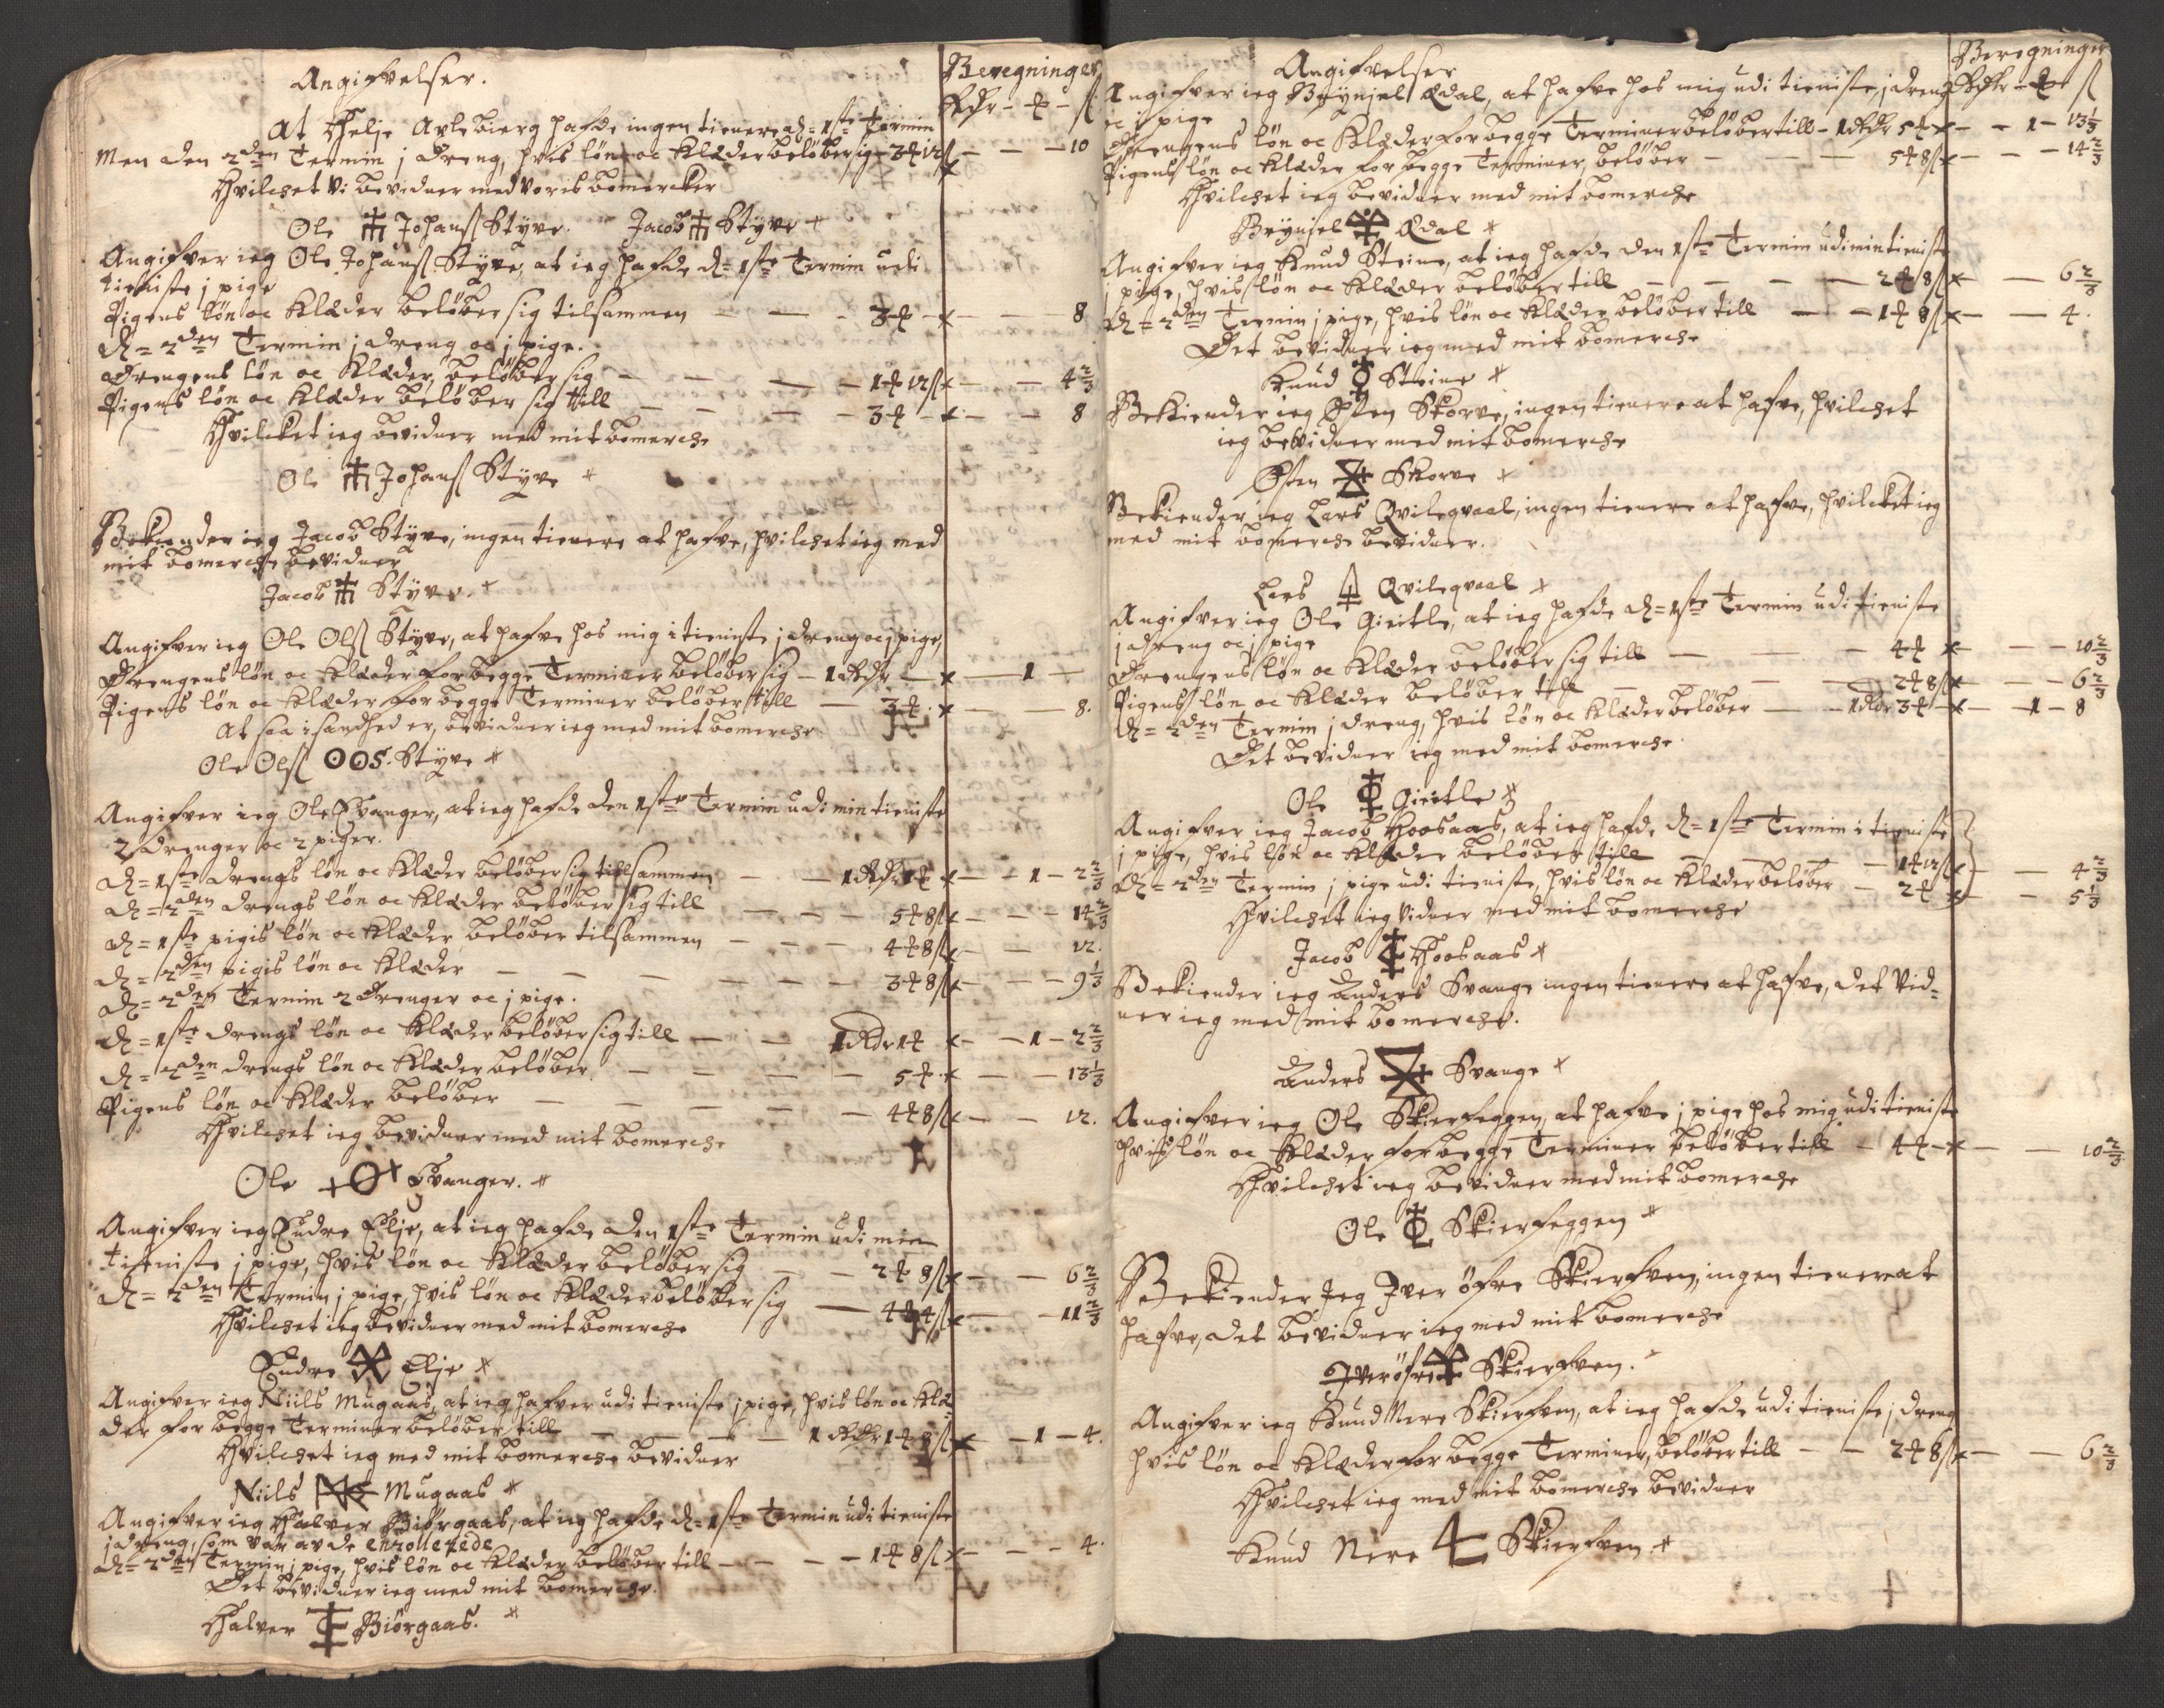 Angifvelser.
Beregninger
Rdr - ₰ - ß
At Helje Arlebierg hafde ingen tienere d= 1ste Termin
Men den 2den Termin j dreng, hvis løn oc Klæder beløber sig 3 ₰ 12 ß x - - - 10
Hvilchet Vi bevidner med Voris bomercker
Ole Johanß Styve. Jacob Styve
Angifver ieg Ole Johanß Styve, at ieg hafde d= 1ste Termin udi
tieniste j pige
Pigens løn oc Klæder beløber sig tilsammen - - - 3 ₰ - x - - 8
d= 2den Termin j dreng oc j pige.
Drengens løn oc Klæder, beløber sig - - - 1 ₰ 12 ß x - - 4 2/3
Pigens løn oc Klæder beløber sig till - - - 3 ₰ - x - - 8
Hvilcket ieg bevidner med mit bomerche
Ole Johanß Styve
Bekiender ieg Jacob Styve, ingen tienere at hafve, hvilchet ieg med
mit bomerche bevidner
Jacob Styve.
Angifver ieg Ole Olß Styve, at hafve hos mig i tieniste j dreng oc j pige,
Drengens løn oc Klæder for begge Terminer beløber sig - 1 Rdr - x - 1 -
Pigens løn oc Klæder for begge Terminer beløber till - 3 ₰. x - - 8.
At saa i sandhed er, bevidner ieg med mit bomerche
Ole Olß OOS. Styve
Angifver ieg Ole Evanger, at ieg hafde den 1ste Termin udi min tieniste
2 drenger oc 2 piger.
d= 1ste drengs løn oc Klæder beløber sig tillsammen - - 1 Rdr 1 ₰ x - - 1 - 2 2/3
d= 2den drengs løn oc Klæder beløber sig till - - - 5 ₰ 8 ß x - - - 14 2/3
d= 1ste pigis løn oc Klæder beløber tilsammen - - - 4 ₰ 8 ß x - - 12.
d= 2den pigis løn oc Klæder - - - 3 ₰ 8 ß x - - - 9 1/3
d= 2den Termin 2 drenger oc j pige.
d= 1ste drengs løn oc Klæder beløber sig till - - 1 Rdr 1 ₰ x - - 1 - 2 2/3
d= 2den drengs løn oc Klæder beløber - - - 5 ₰. x - - - 13 1/3
Pigens løn oc Klæder beløber - - - 4 ₰ 8 ß x - - 12.
Hvilchet ieg bevidner med mit bomerche
Ole Evanger.
Angifver ieg Endre Elje, at ieg hafde den 1ste Termin udi min
tieniste j pige, hvis løn oc Klæder beløber sig - - 2 ₰ 8 ß x - - 6 2/3
d= 2den Termin j pige, hvis løn oc Klæder beløber sig - 4 ₰ 4 ß x - - 11 2/3
Hvilchet ieg bevidner med mit bomerche
Endre Elje
Angifver ieg Niils Mugaas, at ieg hafver udi tieniste j pige, hvis løn oc Klæ-
der for begge Terminer beløber till - - - 1 Rdr 1 ₰ 8 ß x - 1 - 4.
Hvilchet ieg med mit bomerche bevidner
Niils Mugaas
Angifver ieg Halver Biørgaas, at ieg hafde d= 1ste Termin udi tieniste
j dreng, som var av de enrollerede
d= 2den Termin j pige, hvis løn oc Klæder beløber till - - - 1 ₰ 8 ß x - - - 4.
Det bevidner ieg med mit bomerche.
Halver Biörgaas.
Angifvelser
Beregninger
Angifver ieg Brÿnjel Ædal, at hafve hos mig udi tieniste, j dreng Rdr - ₰ ß
oc j pige
Drengens løn oc Klæder for begge Terminer beløber till - 1 Rdr 5 ₰ x - - 1 - 13 1/3
Pigens løn oc Klæder for begge Terminer, beløber - - - 5 ₰ 8 ß x - - - 14 2/3
Hvilchet ieg bevidner med mit bomerche
Brÿnjel Ædal
Angifver ieg Knud Steine, at ieg hafde den 1ste Termin udi min tieniste
j pige, hvis løn oc Klæder beløber till - - - 2 ₰ 8 ß x - - 6 2/3
d= 2den Termin j pige, hvis løn oc Klæder beløber till - - 1 ₰ 8 ß x - - 4.
Det bevidner ieg med mit bomerche
Knud Steine
Bekiender ieg Østen Skorve, ingen tienere at hafve, hvilchet
ieg bevidner med mit bomerche
Østen Skorve
Bekiender ieg Lars Qvileqvaal, ingen tienere at hafve, hvilcket ieg
med mit bomerche bevidner.
Lars Qvileqvaal
Angifver ieg Ole Gieitle, at ieg hafde d= 1ste Termin udi tieniste
j dreng oc j pige
Drengens løn oc Klæder beløber sig till - - - 4 ₰ x - - - 10 2/3
Pigens løn oc Klæder beløber till - - - 2 ₰ 8 ß x - - - 6 2/3
d= 2den Termin j dreng, hvis løn oc Klæder beløber - - 1 Rdr 3 ₰ x - - 1 - 8
Det bevidner ieg med mit bomerche.
Ole Gieitle
Angifver ieg Jacob Hoosaas, at ieg hafde d= 1ste Termin i tieniste
j pige, hvis løn oc Klæder beløber till - - - 1 ₰ 12 ß x - - 4 2/3
d= 2den Termin j pige udi tieniste, hvis løn oc Klæder beløber - 2 ₰ x - - 5 1/3
Hvilchet ieg Vidner med mit bomerche
Jacob Hoosaas
Bekiender ieg Anders Svange ingen tienere at hafve, det Vid-
ner ieg med mit bomerche.
Anders Svange
Angifver ieg Ole Skierfeggen, at hafve j pige hos mig udi tieniste
hvis løn oc Klæder for begge Terminer beløber till - 4 ₰ - x - - 10 2/3
Hvilchet ieg bevidner med mit bomerche
Ole Skierfeggen
Bekiender Jeg Iver øfre Skierfven, ingen tienere at
hafve, det bevidner ieg med mit bomerche
Iver øfre Skierfven.
Angifver ieg Knud Nere Skierfven, at ieg hafde udi tieniste j dreng
hvis løn oc Klæder for begge Terminer, beløber till - - 2 ₰ 8 ß x - - 6 2/3
Hvilchet ieg med mit bomerche bevidner
Knud Nere Skierfven